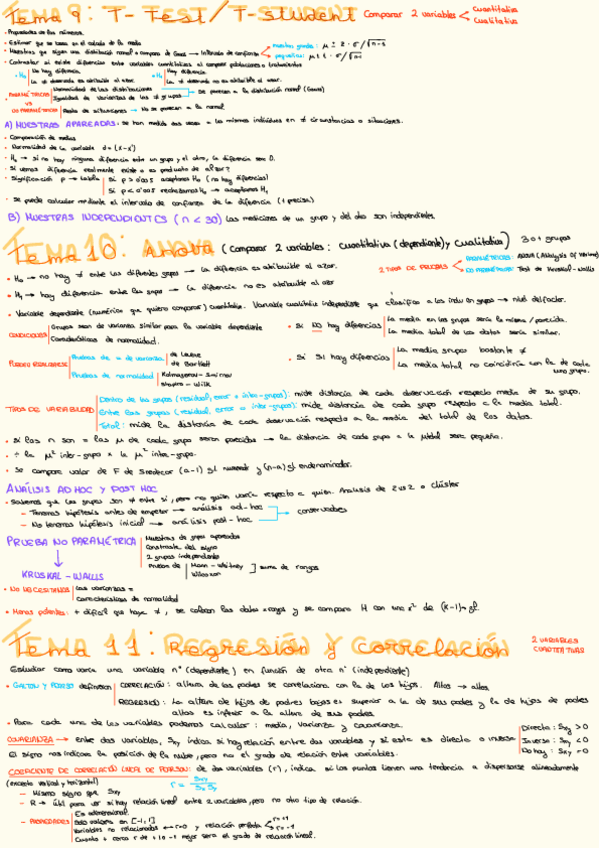 Tema 9: T-Test / T-Student Comparar 2 variables cuantitativa
cualitativa
· Propiedades de los números.
· Estimar que se basa en el cálculo de la media
· Muestras que siguen una distribución normal o campana de Gauss → Intervalo de confianza
muestras grandes:
pequeñas:
· Contrastar si existe diferencias entre variables cuantitativas al comparar poblaciones o tratamientos
· H0 No hay diferencia. · H1 Hay diferencia.
La ≠ observada es atribuible al azar. La ≠ observada no es atribuible al azar.
· PARAMÉTRICOS Normalidad de las distribuciones
VS Igualdad de varianzas de los grupos → Se parecen a la distribución normal (Gauss)
NO PARAMÉTRICOS Resto de situaciones → No se parecen a la normal
A) MUESTRAS APAREADAS. Se han medido dos veces a los mismos individuos en ≠ circunstancias o situaciones.
· Comparación de medias
· Normalidad de la variable d = (x - x')
· H0 → si no hay ninguna diferencia entre un grupo y el otro, la diferencia será 0.
· Si vemos diferencia realmente existe o es producto de azar?
· Significación p → tabla Si p > 0'05 aceptamos H0 (no hay diferencias)
Si p < 0'005 rechazamos H0 → aceptamos H1
· Se puede calcular mediante el intervalo de confianza de la diferencia (+ precisa)
B) MUESTRAS INDEPENDIENTES (n < 30) Las mediciones de un grupo y del otro son independientes.
Tema 10: Anova (Comparar 2 variables: cuantitativa (dependiente) y cualitativa) 3 o + grupos
2 TIPOS DE PRUEBAS PARAMÉTRICAS: ANOVA (Analysis Of Variance)
NO PARAMÉTRICAS: Test de Kruskal-Wallis
· H0 → no hay ≠ entre los diferentes grupos → la diferencia es atribuible al azar.
· H1 → hay diferencia entre los grupos → la diferencia no es atribuible al azar
· Variable dependiente (numérica que quiero comparar) cuantitativa. Variable cualitativa independiente que clasifica a los indiv en grupos → nivel del factor.
CONDICIONES Grupos sean de varianza similar para la variable dependiente
Características de normalidad.
· Si NO hay diferencias La media en los grupos sería la misma / parecida.
La media total de los datos sería similar.
PUEDEN REALIZARSE Pruebas de = de varianzas de Levene
de Bartlett
Pruebas de normalidad Kolmogorov-Smirnov
Shapiro-Wilk
· Si SI hay diferencias La media grupos bastante ≠
La media total no coincidiría con la de cada uno grupo.
TIPOS DE VARIABILIDAD Dentro de los grupos (residual, error o intra-grupos): mide distancia de cada observación respecto media de su grupo.
Entre los grupos (residual, error o inter-grupos): mide distancia de cada grupo respecto a la media total.
Total: mide la distancia de cada observación respecto a la media del total de los datos.
· Si las n son = las μ de cada grupo serán parecidas → la distancia de cada grupo a la μ total será pequeña.
· ÷ la μ² inter-grupo a la μ² intra-grupo.
· Se compara valor de F de Snedecor (a-1) gl numerador y (n-a) gl en denominador.
ANÁLISIS AD HOC Y POST HOC
· Sabemos que los grupos son ≠ entre sí, pero no quién varía respecto a quien. Análisis de 2 vs 2 o clúster
- Tenemos hipótesis antes de empezar → análisis ad-hoc
- No tenemos hipótesis inicial → análisis post-hoc
conservadores
PRUEBA NO PARAMÉTRICA Muestras de grupos apareados
Contraste del signo
2 grupos independientes
Prueba de Mann-Whitney
Wilcoxon suma de rangos
KRUSKAL-WALLIS
· NO NECESITAMOS Las varianzas =
Características de normalidad
· Menos potentes: + difícil que haya ≠, se calculan los datos x rangos y se compara H con una x² de (K-1) gl.
Tema 11: Regresión y correlación 2 VARIABLES
CUANTITATIVAS
Estudiar como varía una variable nª (dependiente) en función de otra nª (independiente)
· GALTON Y PEARSON definieron CORRELACIÓN: altura de los padres se correlaciona con la de los hijos. Altos → altos
REGRESIÓN: La altura de hijos de padres bajos es superior a la de sus padres y la de hijos de padres
altos es inferior a la altura de sus padres.
· Para cada una de las variables podemos calcular: media, varianza y covarianza.
COVARIANZA → entre dos variables, Sxy indica si hay relación entre dos variables y si esta es directa o inversa
Directa: Sxy > 0
Inversa: Sxy < 0
No hay: Sxy = 0
El signo nos indicara la posición de la nube, pero no el grado de relación entre variables.
COEFICIENTE DE CORRELACIÓN LINEAL DE PEARSON: de dos variables (r), indica si los puntos tienen una tendencia a dispersarse alineadamente
(excepto vertical y horizontal) r = Sxy / Sx Sy
- Mismo signo que Sxy
- R → útil para ver si hay relación lineal entre 2 variables, pero no otro tipo de relación.
- PROPIEDADES Es adimensional.
Solo valores en [-1, 1]
Variables no relacionadas → r=0 y relación perfecta r=+1
r=-1
Cuanto + cerca r de +1 o -1 mejor será el grado de relación lineal.